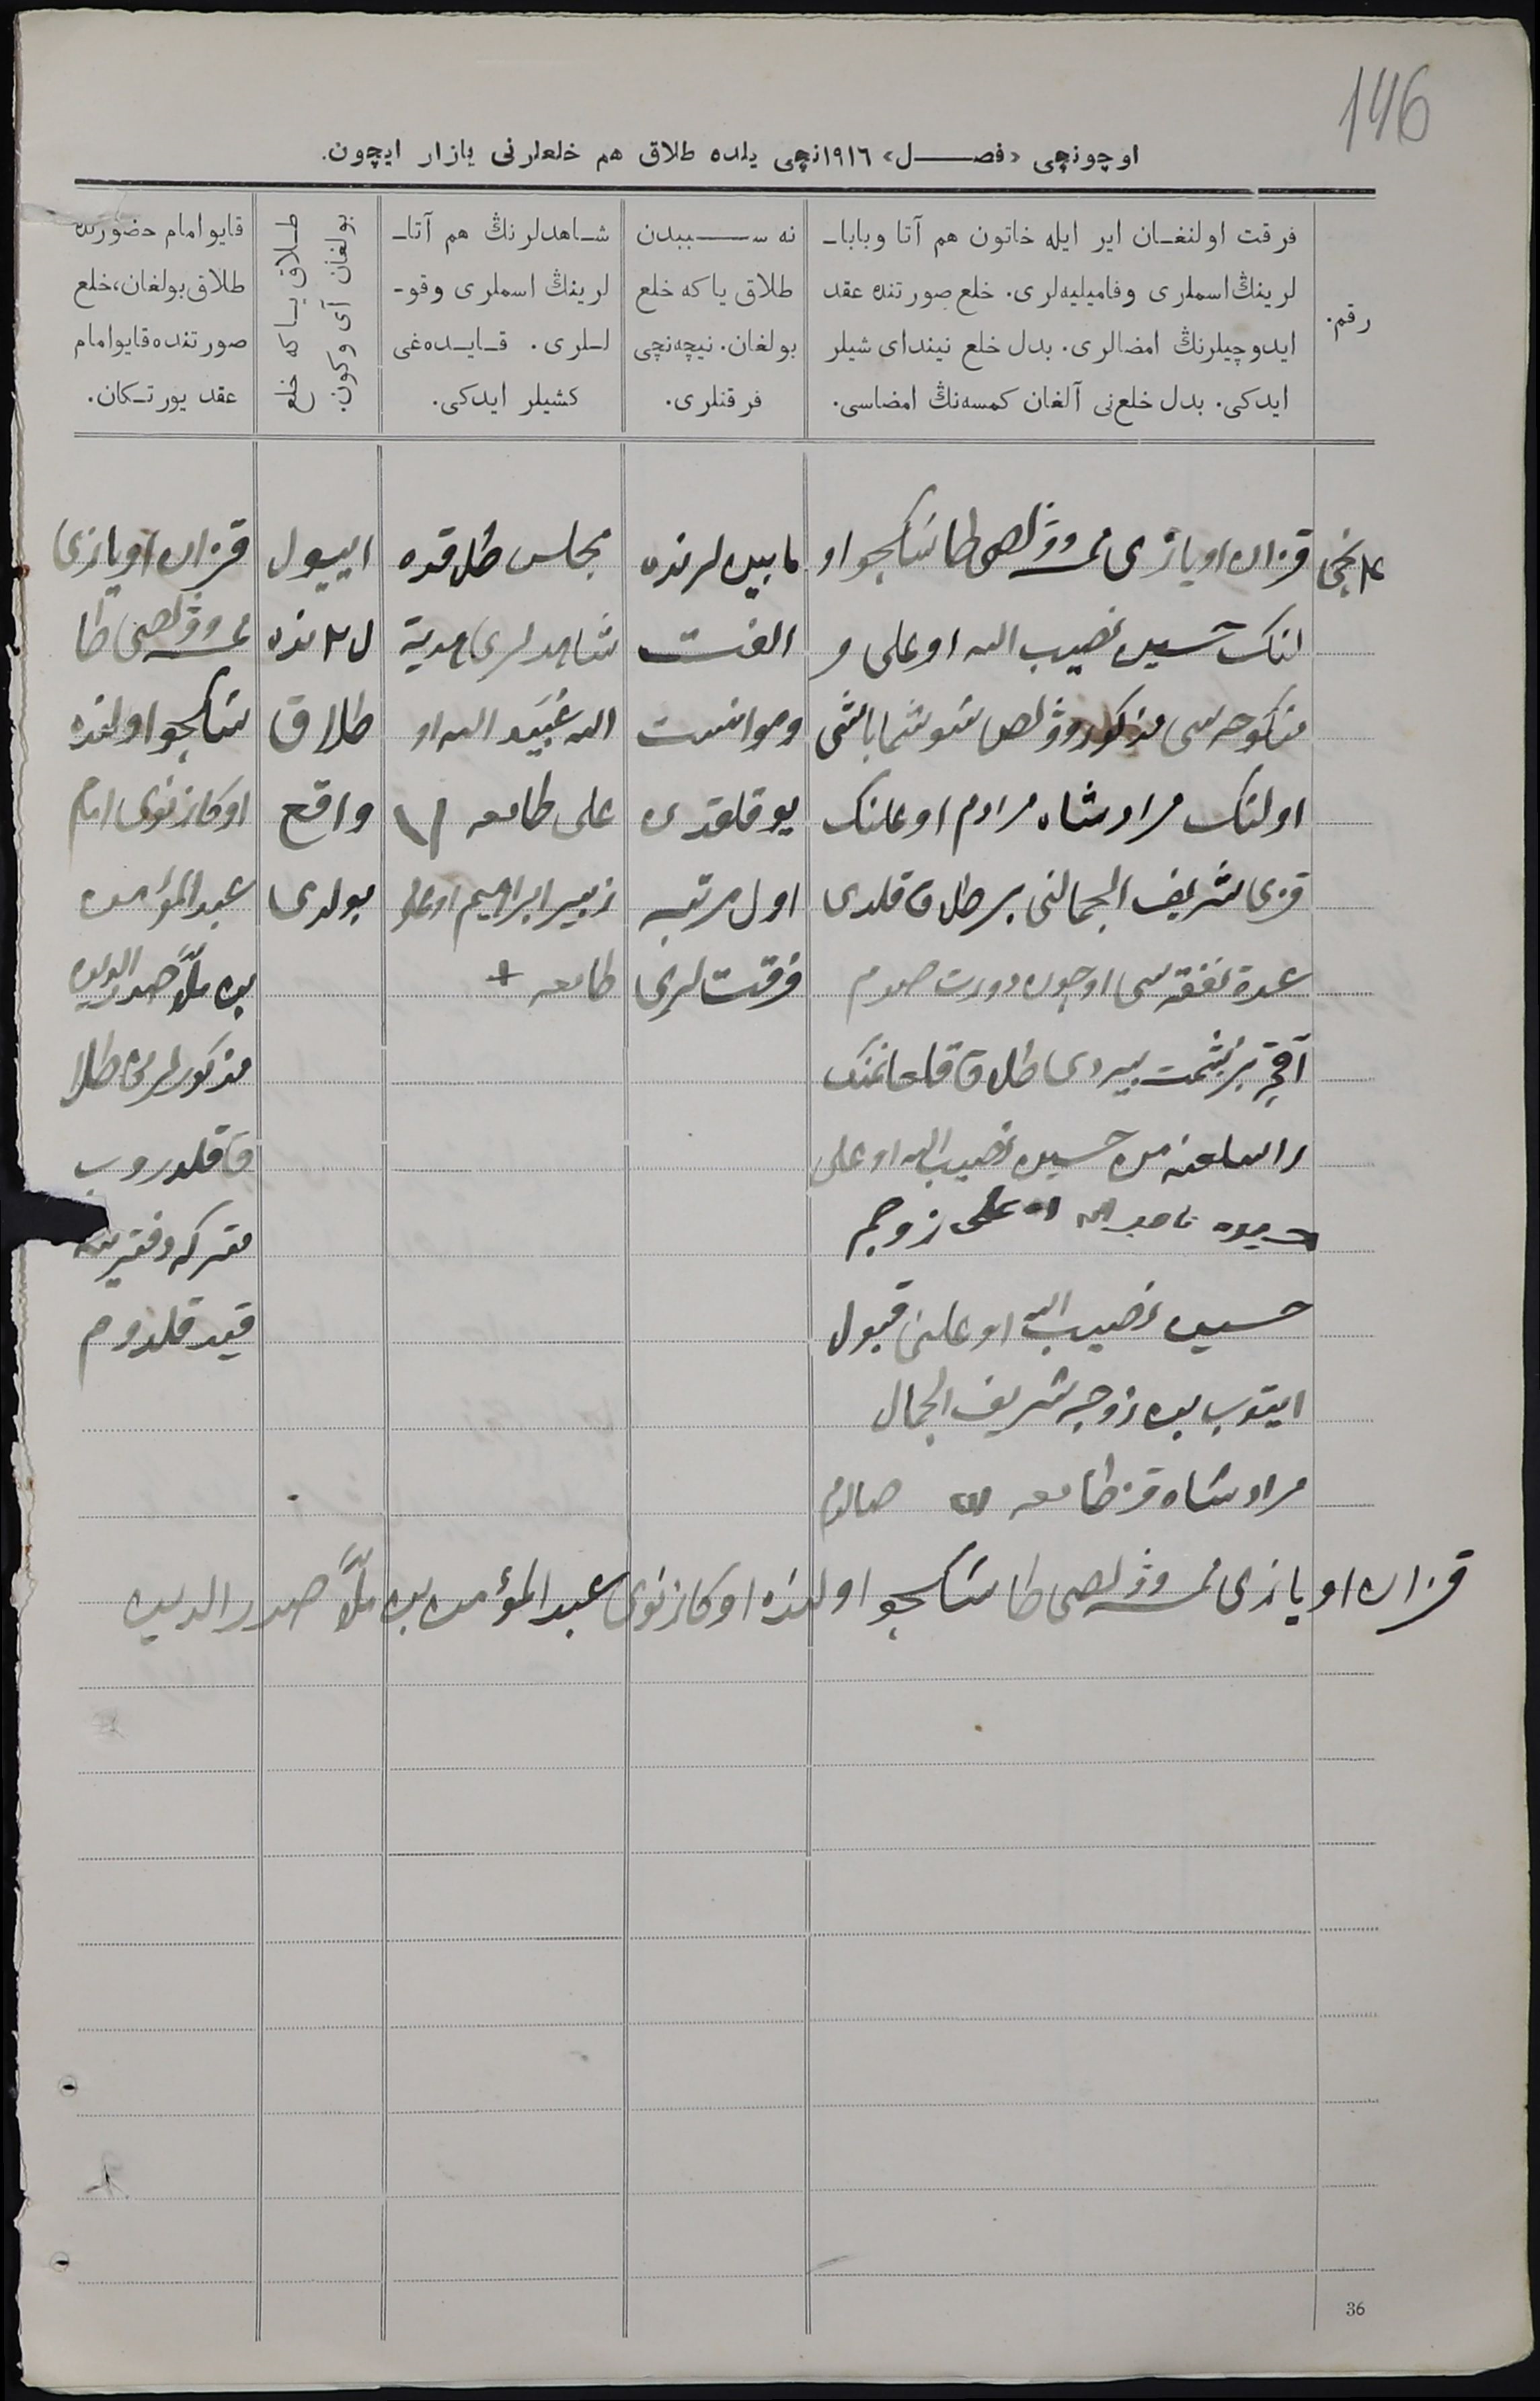 146
اوچونچی «فصل» ١٩١٦نچی یلده طلاق هم خلعلرنی یازار ایچون.
رقم.
فرقت اولنغان ایر ایله خاتون هم آتا وبابا-
لرینڭ اسملری وفامیلیه‌لری. خلع صورتنده عقد
ایدوچیلرنڭ امضالری. بدل خلع نیندای شیلر
ایدکی. بدل خلعنی آلغان کمسه‌نڭ امضاسی.
نه سببدن
طلاق یاکه خلع
بولغان. نیچه‌نچی
فرقتلری.
شاهدلرنڭ هم آتا-
لرینڭ اسملری وفو-
للری. قایده‌غی
کشیلر ایدکی.
طلاق یاکه خلع
بولغان آی وکون.
قایو امام حضورنده
طلاق بولغان، خلع
صورتنده قایو امام
عقد یورتکان.
قزان اویازی وولصی طاشکچو او
لنک حسین نصیب الله اوغلی و
منکوحه سی مذکور وولص باشی
اولنک مرادشاه مرادم اوغلنک
قزی شریف الجمالنی بر طلاق قلدی
عدة نفقه سی اوچون دورت صوم
آقچه بیردی طلاق قلغاننک
من حسین نصیب الله اوغلی
اوغلی زوجم
حسین نصیب الله اوغلنی قبول
ایتوب بن زوجه شریف الجمال
مرادشاه قزی طامغه
مابینلرنده
الفت
وموانست
یوقلقدن
اول مرتبه
فرقتلری
مجلس طلاقده
شاهدلری هدیة
الله عبید الله او
غلی طامغه
زبیر ابراهیم اوغلی
طامغه +
اییول
نده
طلاق
واقع
بولدی
قزان اویازی
وولصی طا
شکچو اولنده
اوکازنوی امام
عبد المؤمن
بن ملا صدرالدین
مذکورلرنی طلا
ق قلدروب
متركه دفترینه
قید قلدوم
قزان اویازی وولصی طاشکچو اولنده اوکازنوی عبد المؤمن بن ملا صدر الدین
36